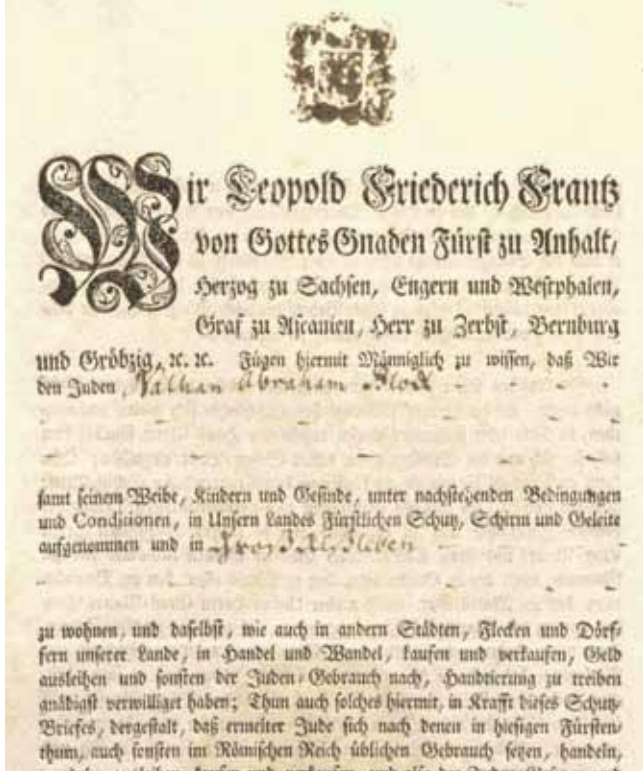 Wir Leopold Friederich Frantz
von Gottes Gnaden Fürst zu Anhalt,
Herzog zu Sachsen, Engern und Westphalen,
Graf zu Ascanien, Herr zu Zerbst, Bernburg
und Gröbzig, ꝛc. ꝛc. Fügen hiermit Männiglich zu wissen, daß Wir
den Juden Nathan Abraham Block
samt seinem Weibe, Kindern und Gesinde, unter nachstehenden Bedingungen
und Conditionen, in Unsern Landes Fürstlichen Schutz, Schirm und Geleite
aufgenommen und in Groß Alsleben
zu wohnen, und daselbst, wie auch in andern Städten, Flecken und Dörf-
fern unserer Lande, in Handel und Wandel, kaufen und verkaufen, Geld
ausleihen und sonsten der Juden-Gebrauch nach, Handtierung zu treiben
gnädigst verwilliget haben; Thun auch solches hiermit, in Krafft dieses Schutz-
Briefes, dergestalt, daß ermelter Jude sich nach denen in hiesigen Fürsten-
thum, auch sonsten im Römischen Reich üblichen Gebrauch setzen, handeln,